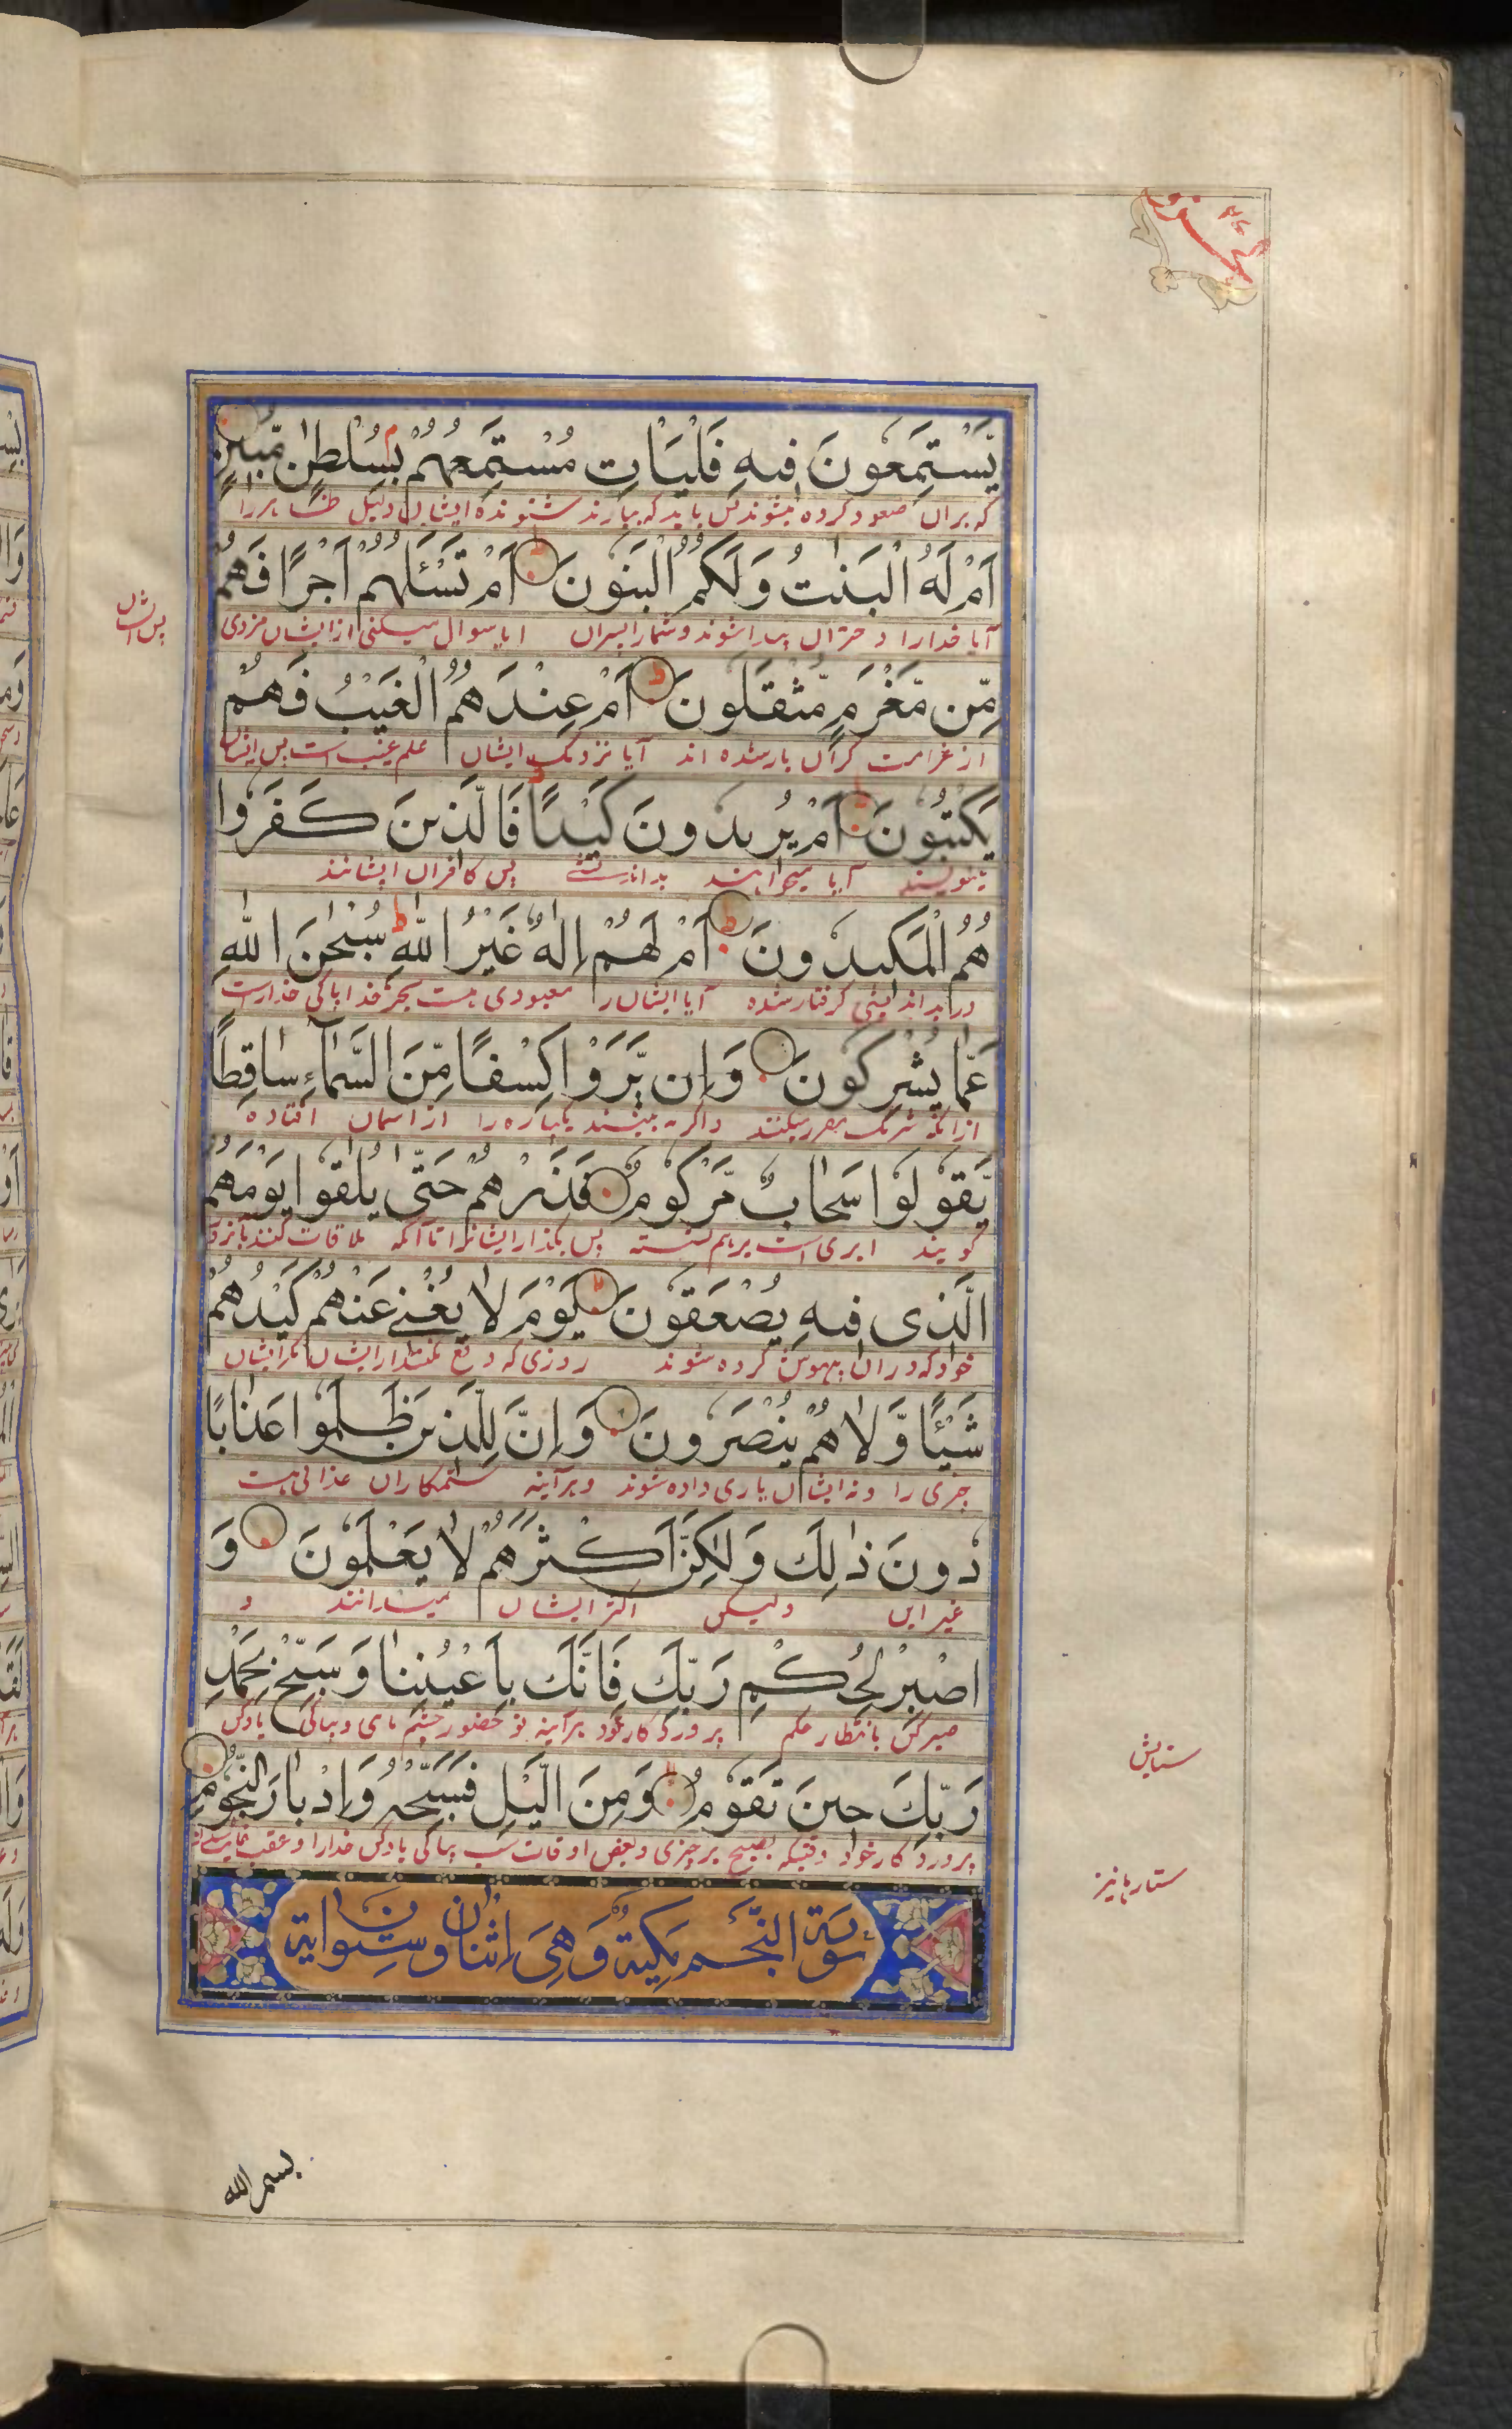 يَّسْتَمِعُونَ فِيهِ فَلْيَاْتِ مُسْتَمِعُهُمْ بِسُلْطٰنٍ مُّبِيْنٍ
که بران صعود کرده میشنوند پس باید که بیارند شنونده ایشان دلیل ظاهر را
اَمْ لَهُ الْبَنٰتُ وَلَكُمُ الْبَنُونَ اَمْ تَسْئَلُهُمْ اَجْرًا فَهُمْ
آیا خدارا دختران پیدا شوند و شمارا پسران ایا سوال میکنی از ایشان مزدی
پس ایشان
مِّن مَّغْرَمٍ مُّثْقَلُونَ اَمْ عِنْدَهُمُ الْغَيْبُ فَهُمْ
از غرامت گران بار شده اند آیا نزدیک ایشان علم غیب است پس ایشان
يَكْتُبُونَ اَمْ يُرِيدُونَ كَيْدًا فَالَّذِينَ كَفَرُوا
مینویسند آیا میخواهند بد اندیشی پس کافران ایشانند
هُمُ الْمَكِيدُونَ اَمْ لَهُمْ اِلٰهٌ غَيْرُ اللّٰهِ سُبْحٰنَ اللّٰهِ
در بد اندیشی گرفتار شده آیا ایشان را معبودی هست بجز خدا پاکی خداراست
عَمَّا يُشْرِكُونَ وَاِن يَّرَوْا كِسْفًا مِّنَ السَّمَآءِ سَاقِطًا
از آنکه شریک مقرر میکنند واگر به بینند یکپاره را از آسمان افتاده
يَّقُولُوا سَحَابٌ مَّرْكُومٌ فَذَرْهُمْ حَتّٰى يُلٰقُوا يَوْمَهُمُ
گویند ابری است برهم نشسته پس بگذار ایشانرا تا آنکه ملاقات کنند بآنروز
الَّذِى فِيهِ يُصْعَقُونَ يَوْمَ لَا يُغْنِي عَنْهُمْ كَيْدُهُمْ
خود که دران بیهوش کرده شوند روزی که دفع نکند از ایشان مکر ایشان
شَيْئًا وَّلَا هُمْ يُنْصَرُونَ وَاِنَّ لِلَّذِينَ ظَلَمُوا عَذَابًا
چیزی را و نه ایشان یاری داده شوند و هرآینه ستمکاران عذابی هست
دُونَ ذٰلِكَ وَلٰكِنَّ اَكْثَرَهُمْ لَا يَعْلَمُونَ وَ
غیر این ولیکن اکثر ایشان نمیدانند و
اصْبِرْ لِحُكْمِ رَبِّكَ فَاِنَّكَ بِاَعْيُنِنَا وَسَبِّحْ بِحَمْدِ
صبر کن بانتظار حکم پروردگار خود هرآینه تو حضور چشم مای و بپاکی یاد کن
ستایش
رَبِّكَ حِينَ تَقُومُ وَمِنَ الَّيْلِ فَسَبِّحْهُ وَاِدْبَارَ النُّجُومِ
پروردگار خود وقتیکه برخیزی وبعض اوقات شب بپاکی یاد کن خدارا و عقب
ستارها نیز
سُورَةُ النَّجْمِ مَكِّيَّةٌ وَّهِىَ اِثْنَانِ وَسِتُّونَ اٰيَةً
بسم الله